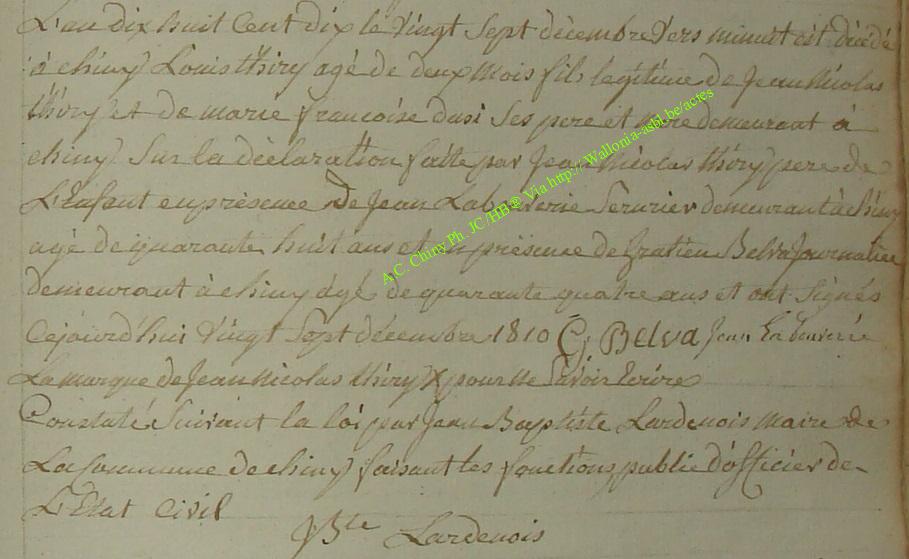 L'an dix huit Cent dix le Vingt Sept décembre Vers minuit est décédé
à chiny Louis thiry agé de deux Mois fils legitime de Jean Nicolas
thiry et de marie francoise dasi Ses pere et mere demeurant à
chiny Sur la déclaration faite par Jean Nicolas thiry pere de
L'Enfant en présence de Jean Serurier demeurant à chiny
agé de quarante huit ans et en présence de gratien Belva Journalier
demeurant à chiny agé de quarante quatre ans et ont Signés
Cejourd'hui Vingt Sept décembre 1810 G, BELVA Jean
La marque de Jean Nicolas thiry X pour ne Savoir Ecrire
Constaté Suivant la loi par Jean Baptiste Lardenois Maire de
La Commune de chiny faisant les fonctions public d'officier de
L'Etat Civil
JBte Lardenois
A.C. Chiny Ph. JC/HB® Via http://Wallonia-asbl.be/actes